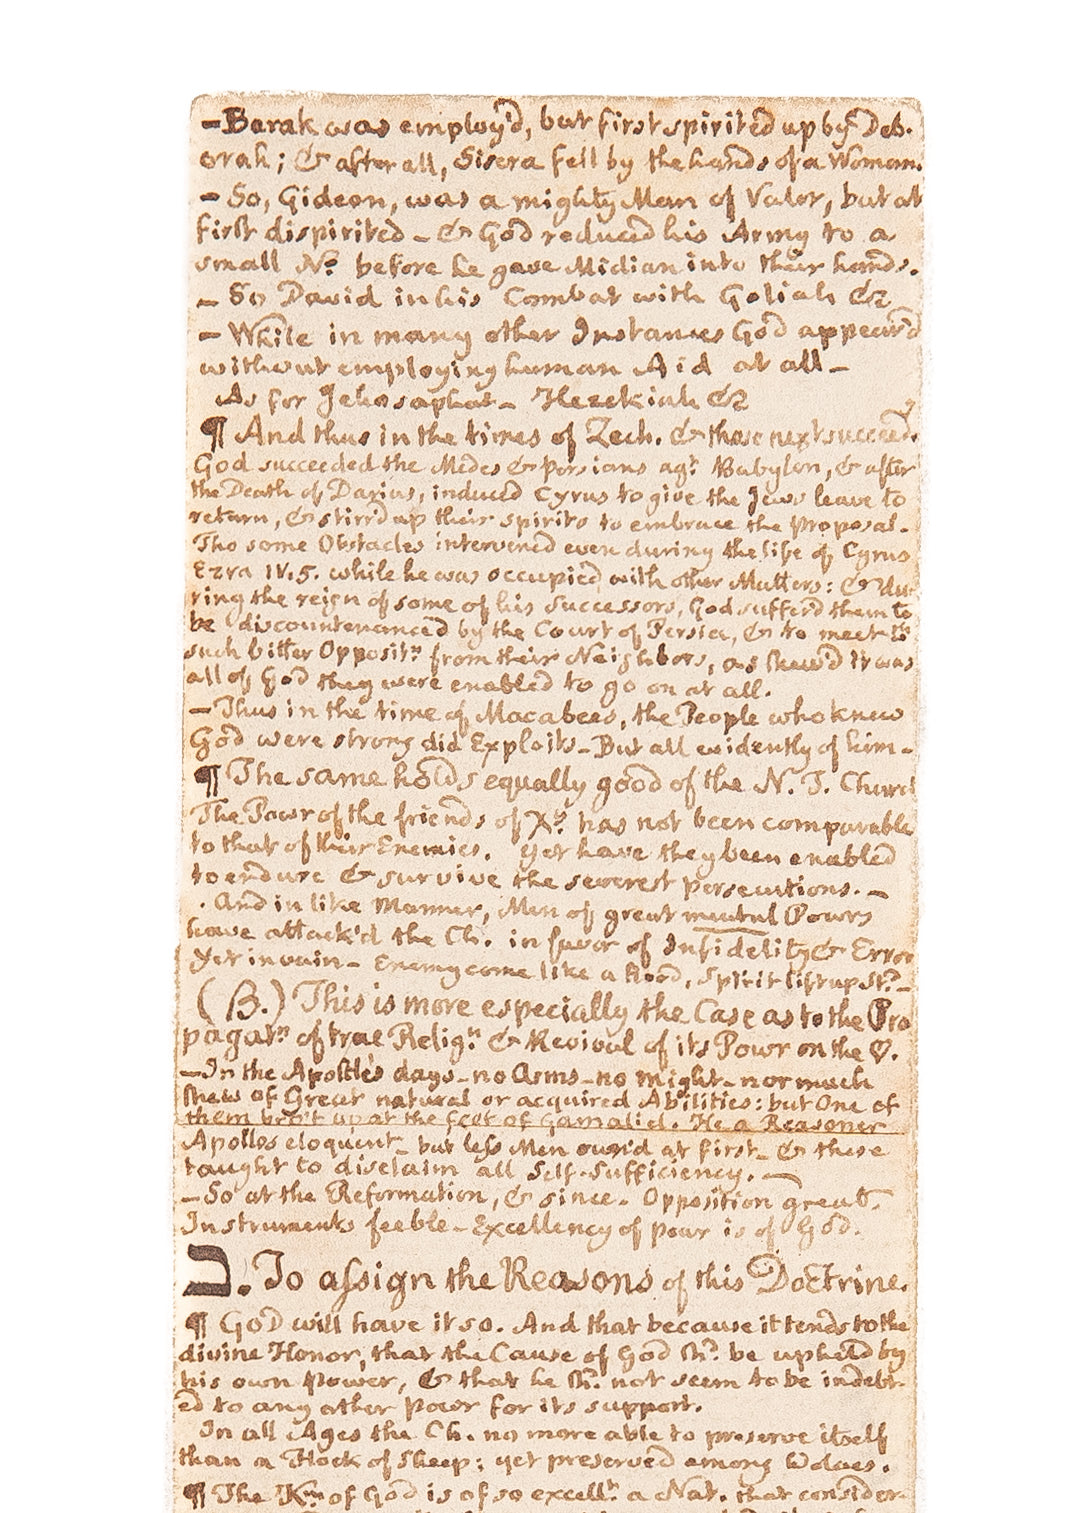 – Barak was employ'd, but first spirited up by Deb-
orah; & after all, Sisera fell by the hands of a Woman.
– So, Gideon, was a mighty Man of Valor, but at
first dispirited – & God reduced his Army to a
small No. before he gave Midian into their hands.
– So David in his Combat with Goliah &c
– While in many other Instances God appear'd
without employing human Aid at all –
As for Jehosaphat – Hezekiah &c
¶ And thus in the times of Zech. & those next succeed.g
God succeeded the Medes & Persians agt. Babylon, & after
the Death of Darius, induced Cyrus to give the Jews leave to
return, & stirr'd up their spirits to embrace the Proposal.
Tho some Obstacles intervened even during the life of Cyrus
Ezra IV.5. while he was occupied with other Matters: & du-
ring the reign of some of his Successors, God sufferd them to
be discountenanced by the Court of Persia, & to meet th
such bitter Oppositn. from their Neighbors, as shew'd it was
all of God they were enabled to go on at all.
– Thus in the time of Macabees, the People who knew
God were strong did Exploits – But all evidently of him –
¶ The same holds equally good of the N. T. Church
The Powr of the friends of Xt. has not been comparable
to that of their Enemies. Yet have they been enabled
to endure & survive the severest persecutions. –
. And in like Manner, Men of great mental Powrs
have attack'd the Ch. in favor of Infidelity & Error
Yet in vain – Enemy come like a flood, Spirit lift up Std. –
(B.) This is more especially the Case as to the Pro
pagatn. of true Relign. & Revival of its Powr on the ♡.
– In the Apostles days – no Arms – no might – nor much
shew of Great natural or acquired Abilities: but One of
them bro't up at the feet of Gamaliel. He a Reasoner
Apollos eloquent – but less Men own'd at first – & these
taught to disclaim all Self-Sufficiency. –
– So at the Reformation, & since. Opposition great.
Instruments feeble – Excellency of powr is of God.
ב. To assign the Reasons of this Doctrine.
¶ God will have it so. And that because it tends to the
divine Honor, that the Cause of God shd. be upheld by
his own Power, & that he shd. not seem to be indebt-
ed to any other Powr for its support.
In all Ages the Ch. no more able to preserve itself
than a Flock of Sheep; yet preserved among Wolves.
¶ The Km of God is of so excellt. a Nat. that consider-